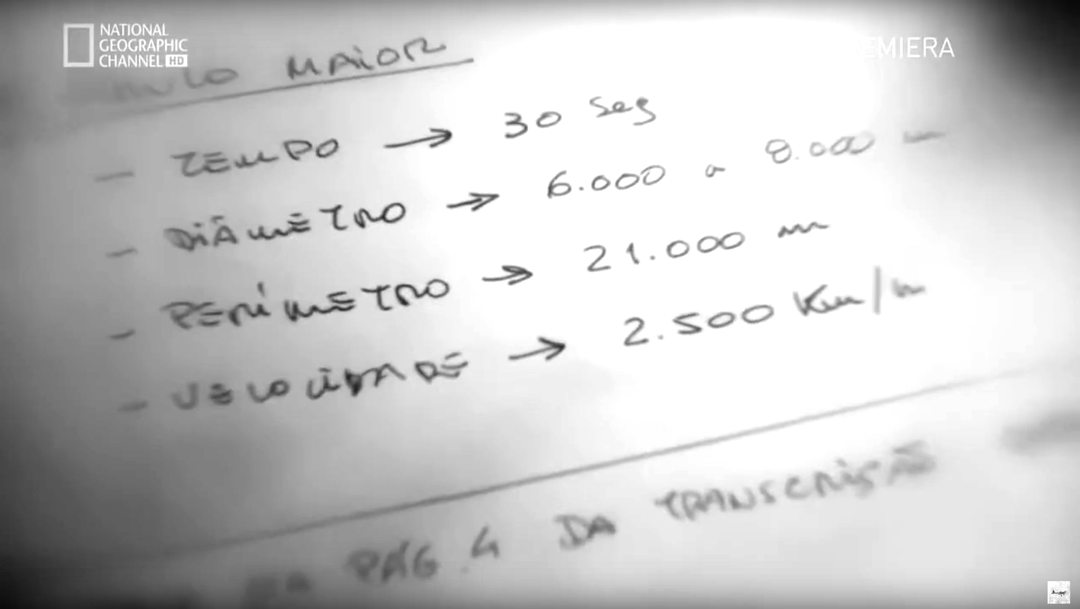 NATIONAL
GEOGRAPHIC
CHANNEL HD
MAIOR
- TEMPO → 30 Seg
- DIÂMETRO → 6.000 a 8.000 m
- PERÍMETRO → 21.000 m
- VELOCIDADE → 2.500 Km/h
PÁG. 4 DA TRANSCRIÇÃO